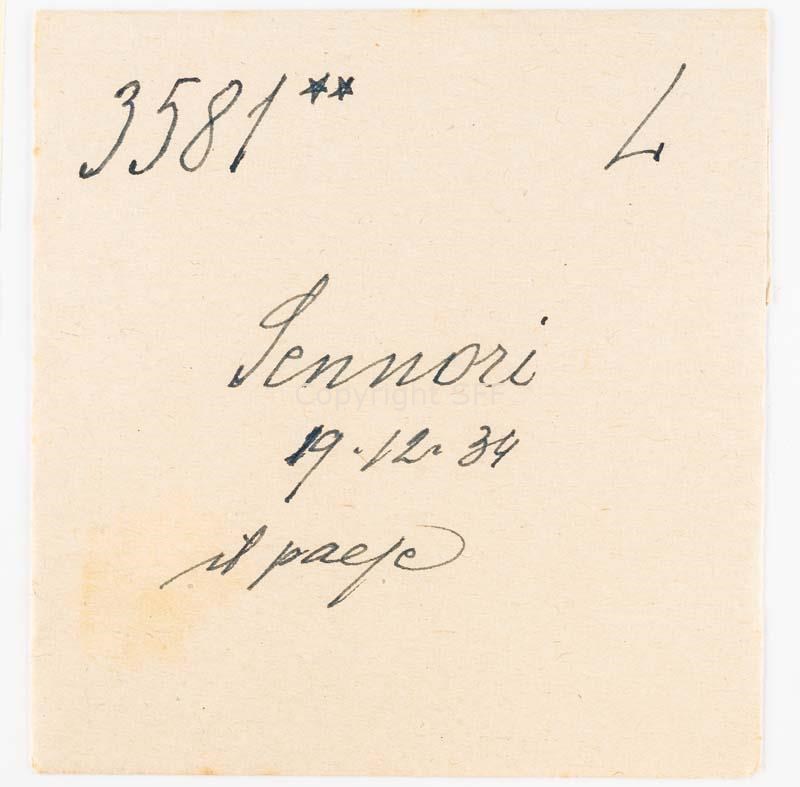 3581** L
Sennori
Copyright SFF
19·12·34
il paese